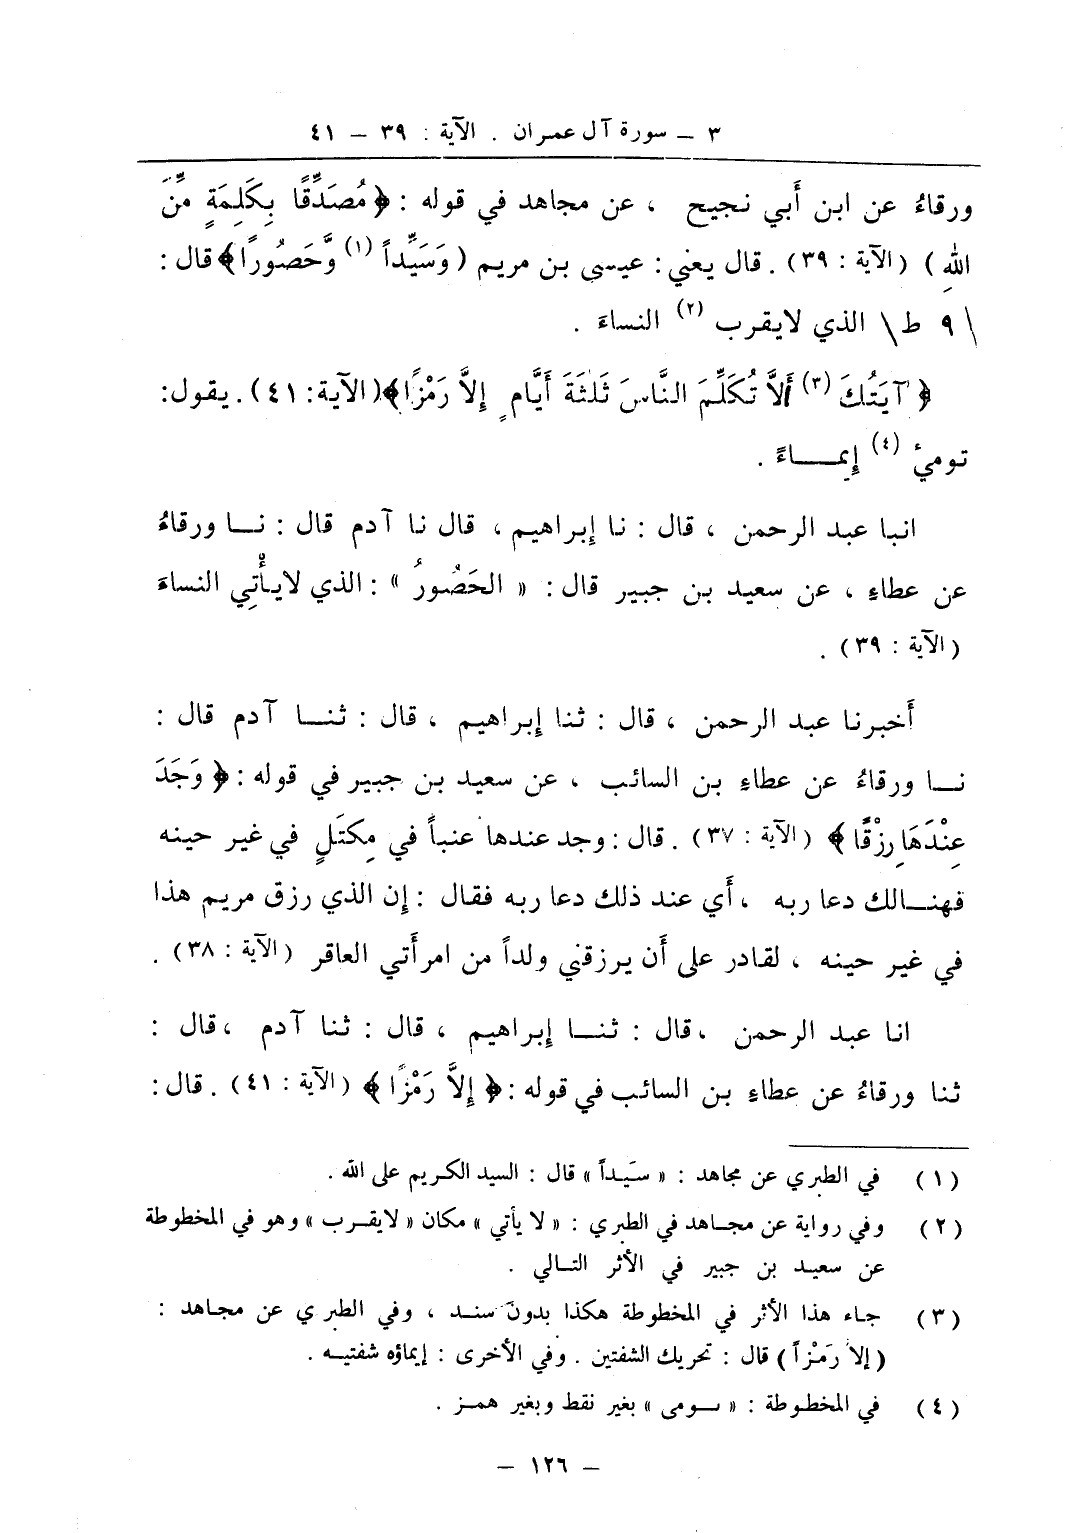 ٣ ــ سورة آل عمران . الآية : ٣٩ ــ ٤١
ورقاءُ عن ابن أَبي نجيح ، عن مجاهد في قوله : ﴿ مُصَدِّقًا بِكَلِمَةٍ مِّنَ
اللهِ ) ( الآية : ٣٩ ) . قال يعني : عيسى بن مريم ( وَسَيِّداً (١) وَّحَصُورًا ﴾ قال :
\ ٩ ط \ الذي لايقرب (٢) النساءَ .
﴿ آيَتُكَ (٣) أَلاَّ تُكَلِّمَ النَّاسَ ثَلٰثَةَ أَيَّامٍ إِلاَّ رَمْزًا ﴾ ( الآية : ٤١ ) . يقول :
تومئ (٤) إِيمـــاءً .
انبا عبد الرحمن ، قال : نا إِبراهيم ، قال نا آدم قال : نــا ورقاءُ
عن عطاءِ ، عن سعيد بن جبير قال : « الحَصُورُ » : الذي لايأْتِي النساءَ
( الآية : ٣٩ ) .
أَخبرنا عبد الرحمن ، قال : ثنا إِبراهيم ، قال : ثنــا آدم قال :
نــا ورقاءُ عن عطاءِ بن السائب ، عن سعيد بن جبير في قوله : ﴿ وَجَدَ
عِنْدَهَا رِزْقًا ﴾ ( الآية : ٣٧ ) . قال : وجد عندها عنباً في مِكتَلٍ في غير حينه
فهنــالك دعا ربه ، أَي عند ذلك دعا ربه فقال : إِن الذي رزق مريم هذا
في غير حينه ، لقادر على أَن يرزقني ولداً من امرأَتي العاقر ( الآية : ٣٨ ) .
انا عبد الرحمن ، قال : ثنــا إِبراهيم ، قال : ثنا آدم ، قال :
ثنا ورقاءُ عن عطاءِ بن السائب في قوله : ﴿ إِلاَّ رَمْزًا ﴾ ( الآية : ٤١ ) . قال :
(١) في الطبري عن مجاهد : « سيّداً » قال : السيد الكريم على الله .
(٢) وفي رواية عن مجــاهد في الطبري : « لا يأتي » مكان « لايقــرب » وهو في المخطوطة
عن سعيــد بن جبير في الأثر التــالي .
(٣) جـاء هذا الأثر في المخطوطة هكذا بدون سنــد ، وفي الطبري عن مجـاهد :
( إلاّ رَمْزاً ) قال : تحريك الشفتين . وفي الأخرى : إيماؤه شفتيــه .
(٤) في المخطـوطة : « ســومى » بغير نقط وبغير همــز .
– ١٢٦ –